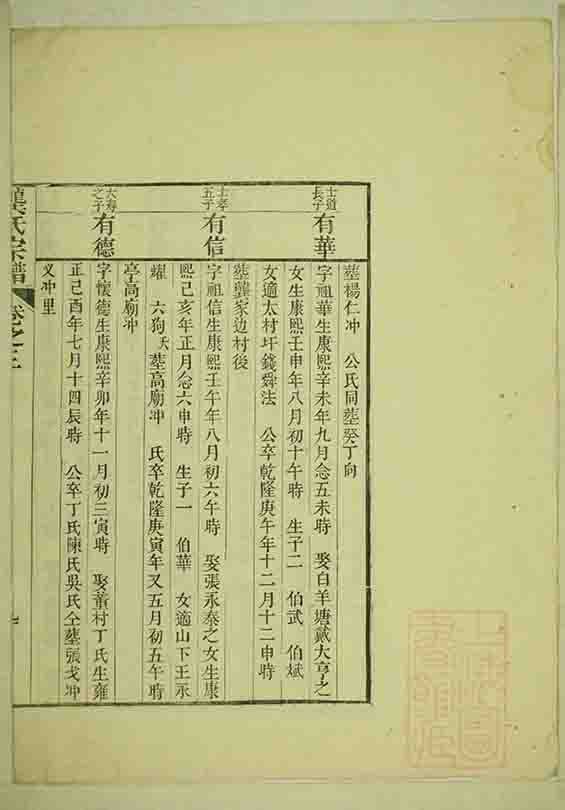 墓楊仁冲　公氏同墓癸丁向
士道長子
有華
字祖華生康熙辛未年九月念五未時　娶白羊塘戴大亨之
女生康熙壬申年八月初十午時　生子二　伯武　伯斌
女適太村圩錢舜法　公卒乾隆庚午年十二月十二申時
墓龔家边村後
士孝五子
有信
字祖信生康熙壬午年八月初六午時　娶張永泰之女生康
熙己亥年正月念六申時　生子一　伯華　女適山下王永
耀　六狗夭　墓高廟冲　氏卒乾隆庚寅年又五月初五午時
亭高廟冲
大壽之子
有德
字懷德生康熙辛卯年十一月初三寅時　娶董村丁氏生雍
正己酉年七月十四辰時　公卒丁氏陳氏吳氏仝墓張戈冲
义冲里
龔氏宗譜　卷之三